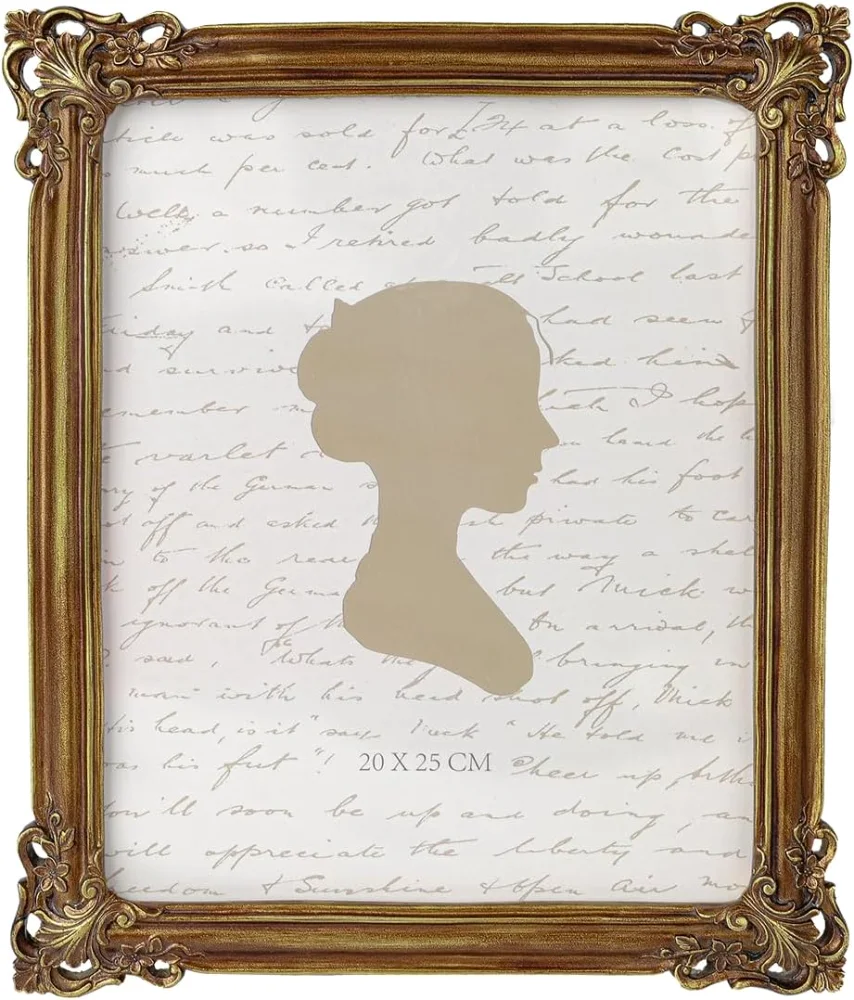 was sold for £ 74 at a loss. of
much per cent. What was the cost
Well, a number got told for the
answer. so I retired badly wounde
Smith called School last
Friday and had seen
d survive ked him
emember I hope
e varlet heard the
ry of the German had his foot
ot off and asked private to car
to the rear the way a shel
k off the Germa but Mick w
ignorant of th On arrival, th
? said, "Whats the " bringing
man with his head shot off, Mick
His head, is it" says Mick " He told me i
was his fut "! 20 X 25 CM Cheer up, Arth
You'll soon be up and doing, an
will appreciate the liberty and
freedom & Sunshine & open air mo